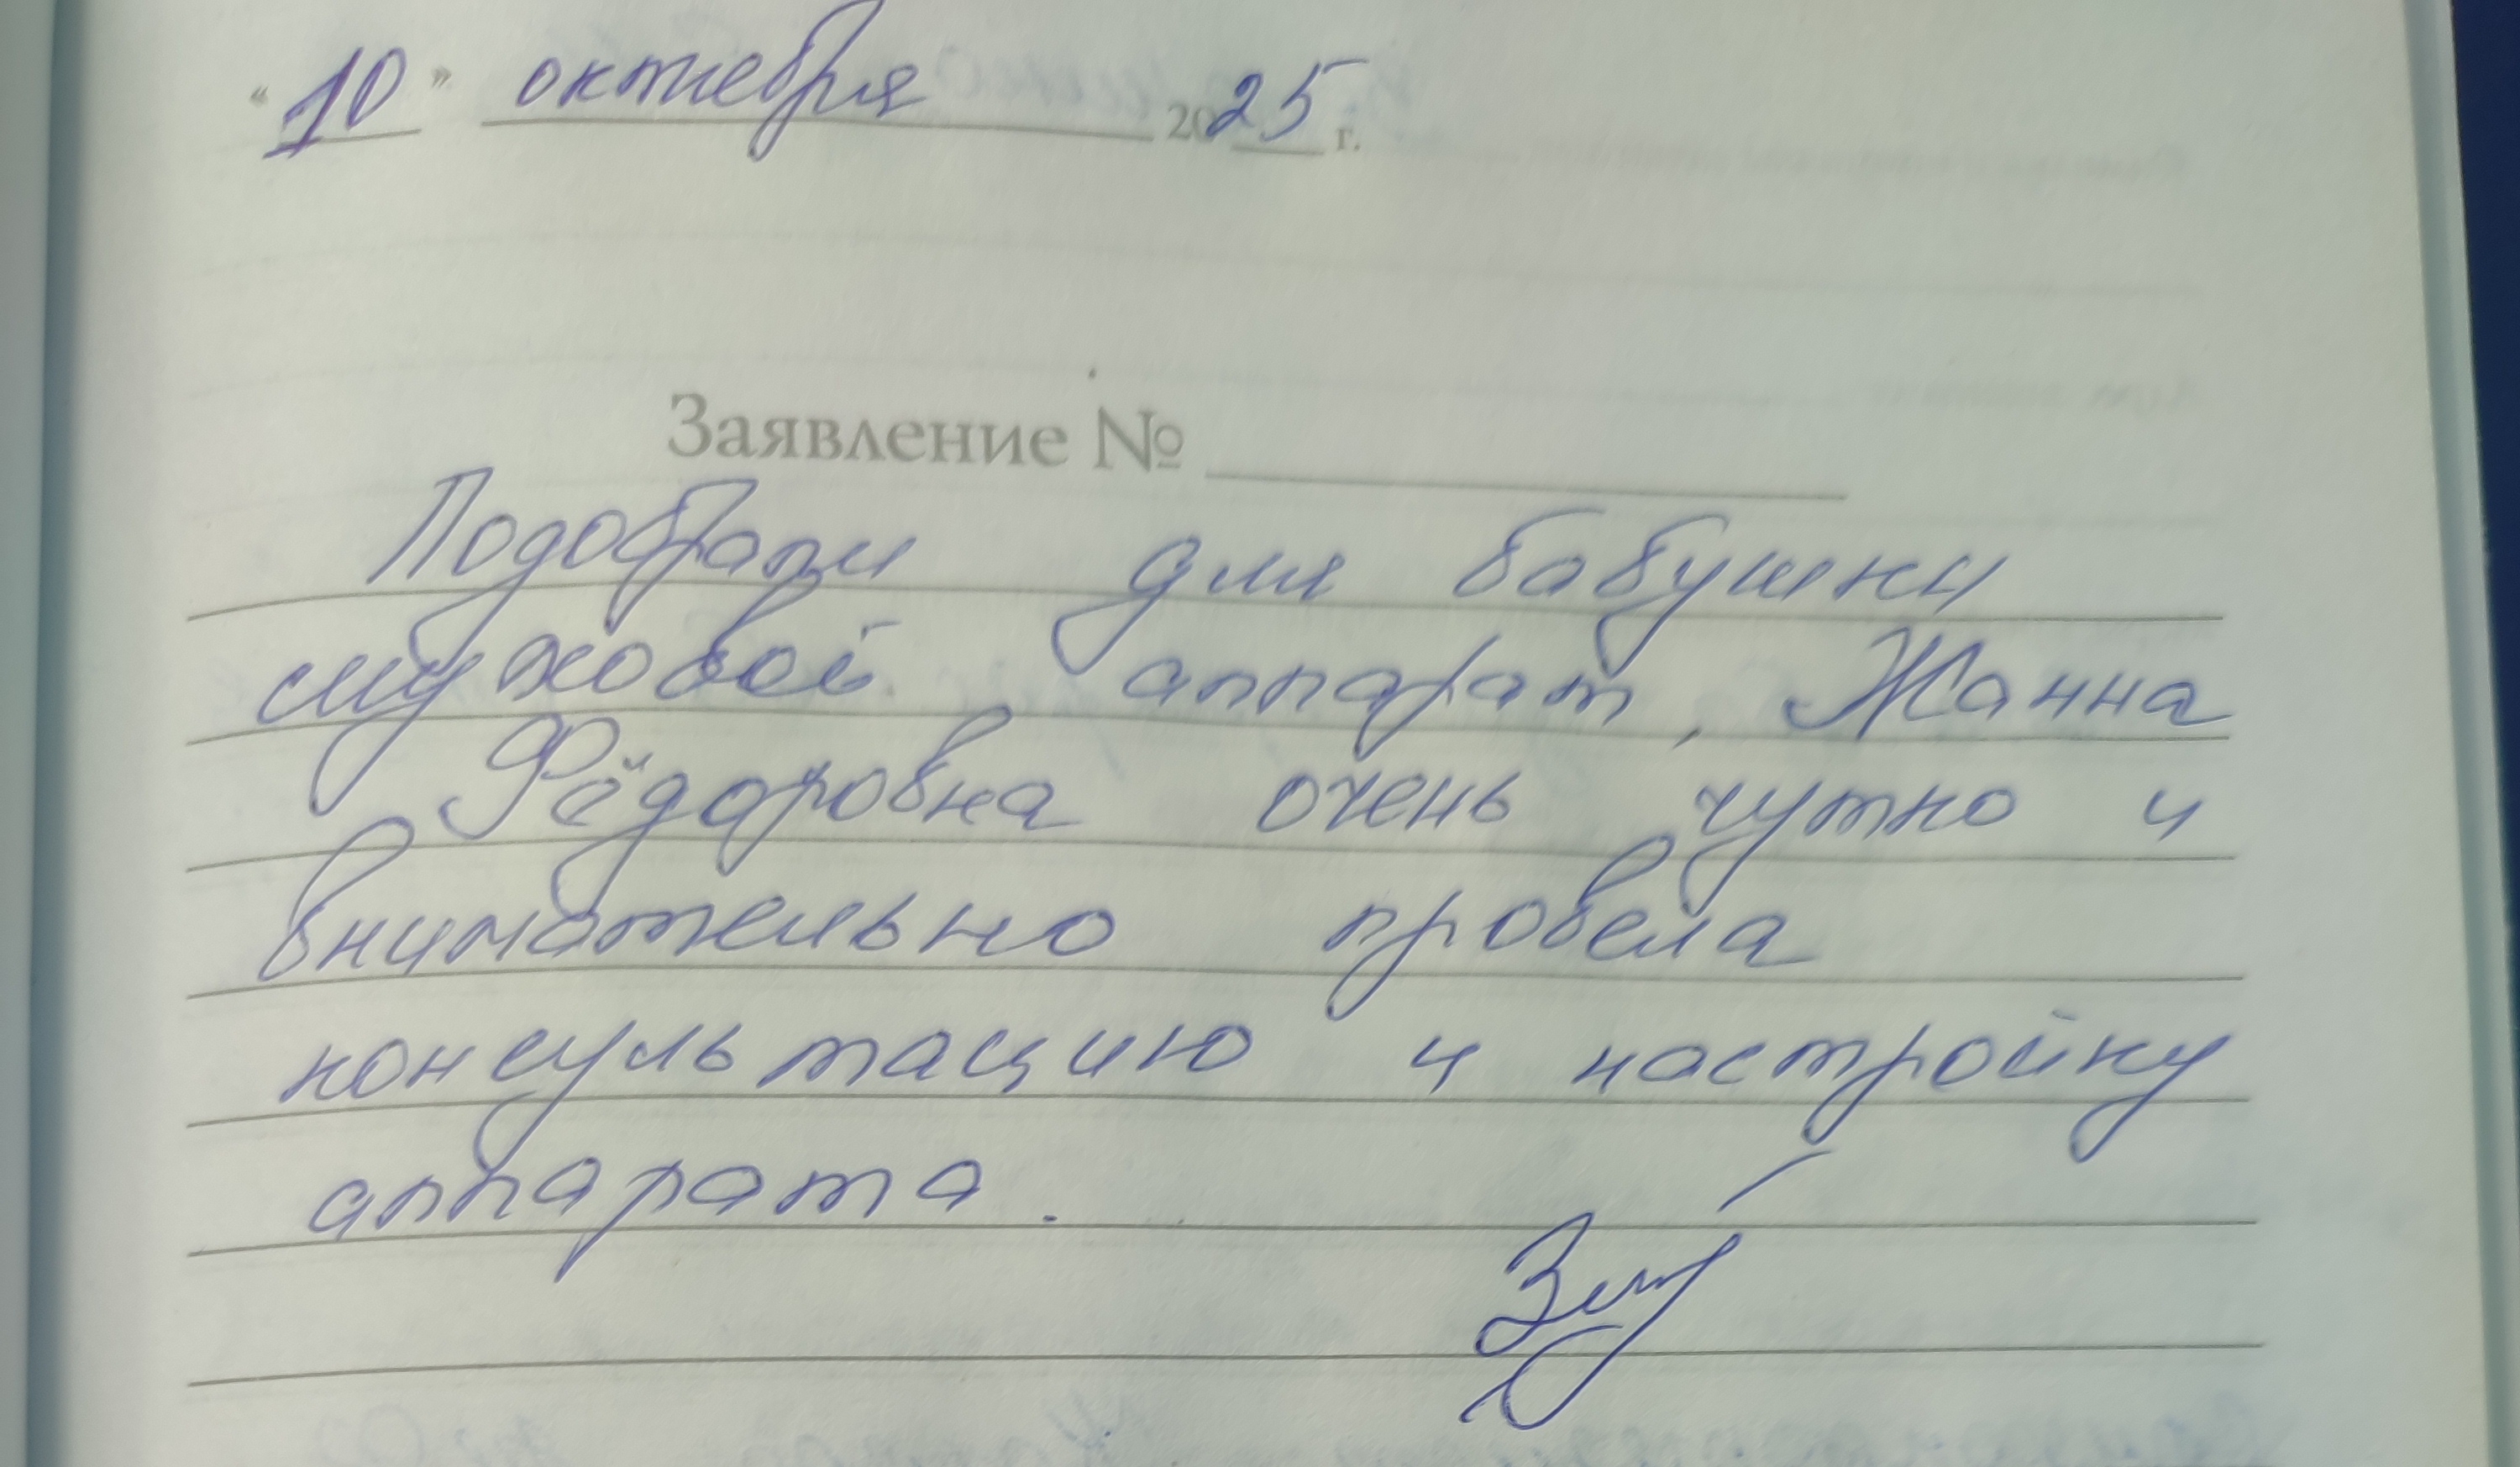 "10" октября 2025 г.
Заявление №
Подобрали для бабушки
слуховой аппарат, Жанна
Фёдоровна очень чутко и
внимательно провела
консультацию и настройку
аппарата.